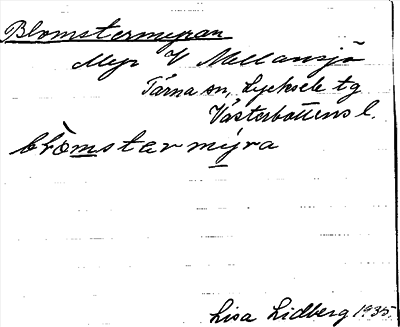 Blomstermyran
Myr V Mellansjö
Tärna sn, Lycksele tg
Västerbottens l.
blòmstermýra
Lisa Lidberg 1935.